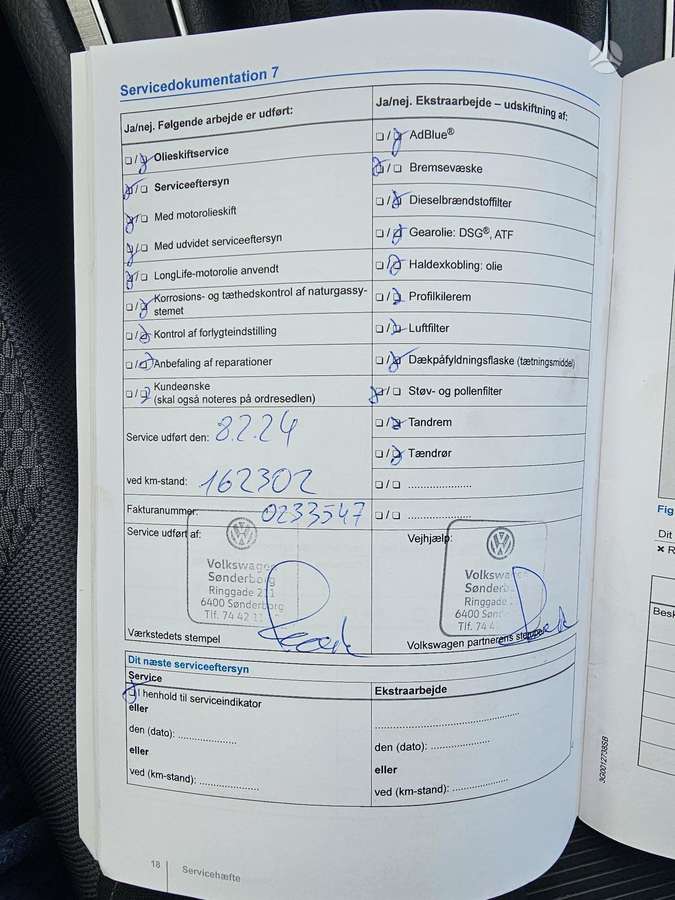 Servicedokumentation 7
Ja/nej. Følgende arbejde er udført:
Ja/nej. Ekstraarbejde – udskiftning af:
☐/☐ Olieskiftservice
☐/☐ AdBlue®
☐/☐ Serviceeftersyn
☐/☐ Bremsevæske
☐/☐ Med motorolieskift
☐/☐ Dieselbrændstoffilter
☐/☐ Med udvidet serviceeftersyn
☐/☐ Gearolie: DSG®, ATF
☐/☐ LongLife-motorolie anvendt
☐/☐ Haldexkobling: olie
☐/☐ Korrosions- og tæthedskontrol af naturgassy-
stemet
☐/☐ Profilkilerem
☐/☐ Kontrol af forlygteindstilling
☐/☐ Luftfilter
☐/☐ Anbefaling af reparationer
☐/☐ Dækpåfyldningsflaske (tætningsmiddel)
☐/☐ Kundeønske
(skal også noteres på ordresedlen)
☐/☐ Støv- og pollenfilter
Service udført den: 8.2.24
☐/☐ Tandrem
☐/☐ Tændrør
ved km-stand: 162302
☐/☐ ......................
Fakturanummer: 0233547
☐/☐ ......................
Service udført af:
Vejhjælp:
Volkswagen
Sønderborg
Ringgade 211
6400 Sønderborg
Tlf. 74 42
Værkstedets stempel
Volkswagen
Sønderb
Ringgade
6400 Sønd
Tlf. 74 4
Volkswagen partnerens stempel
Dit næste serviceeftersyn
Service
Ekstraarbejde
☐ I henhold til serviceindikator
eller
den (dato): ....................
eller
ved (km-stand): ....................
den (dato): ....................
eller
ved (km-stand): ....................
18 Servicehæfte
3G0012738SB
Fig
Dit
× R
Besk